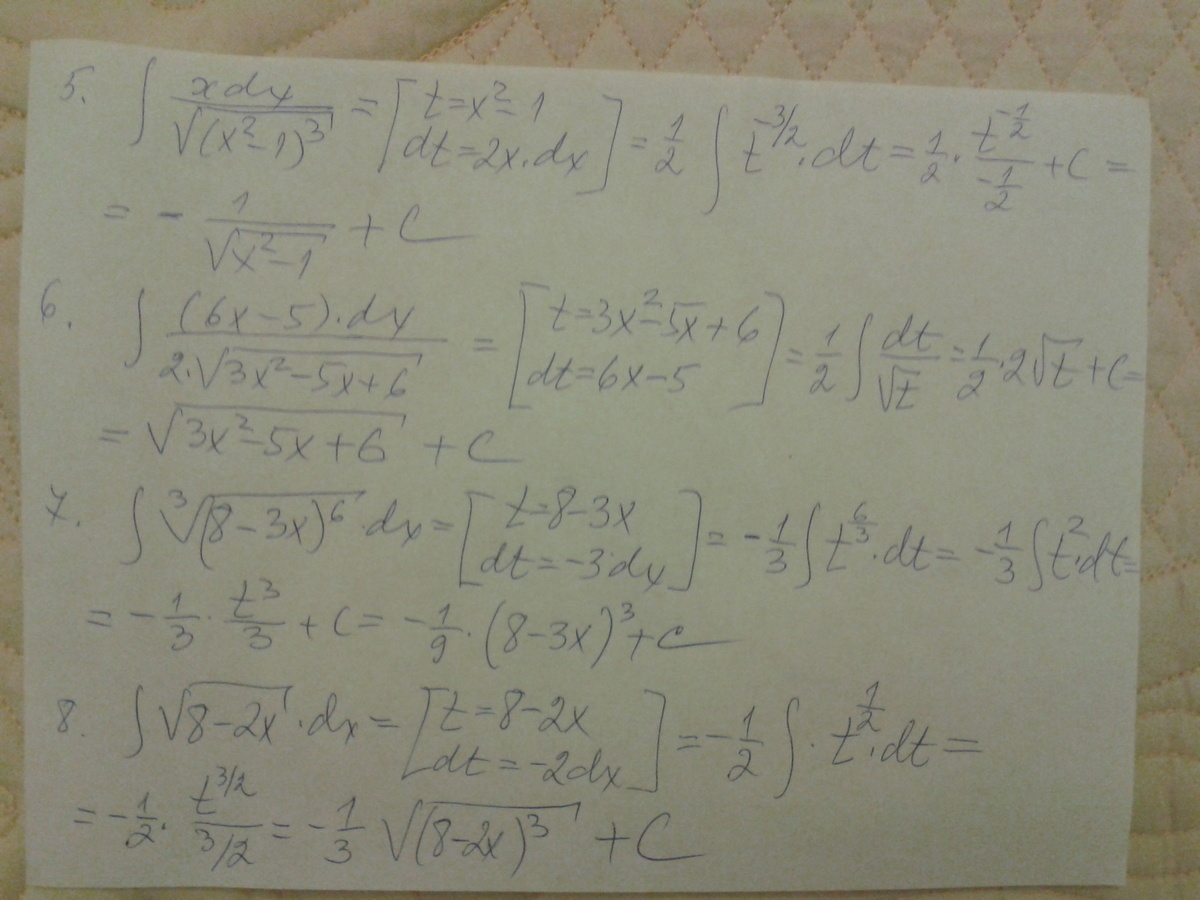 5. ∫ xdx/√(x²-1)³ = [t=x²-1 dt=2x.dx] = 1/2 ∫ t^-3/2 . dt = 1/2 . t^-1/2 / -1/2 + C =
= - 1/√x²-1 + C
6. ∫ (6x-5).dx / 2.√3x²-5x+6 = [t=3x²-5x+6 dt=6x-5] = 1/2 ∫ dt/√t = 1/2 . 2√t + C =
= √3x²-5x+6 + C
7. ∫ ³√(8-3x)⁶ . dx = [t=8-3x dt=-3.dx] = -1/3 ∫ t^6/3 . dt = -1/3 ∫ t² . dt =
= -1/3 . t³/3 + C = -1/9 . (8-3x)³ + C
8. ∫ √8-2x . dx = [t=8-2x dt=-2dx] = -1/2 ∫ . t^1/2 . dt =
= -1/2 . t^3/2 / 3/2 = -1/3 √(8-2x)³ + C